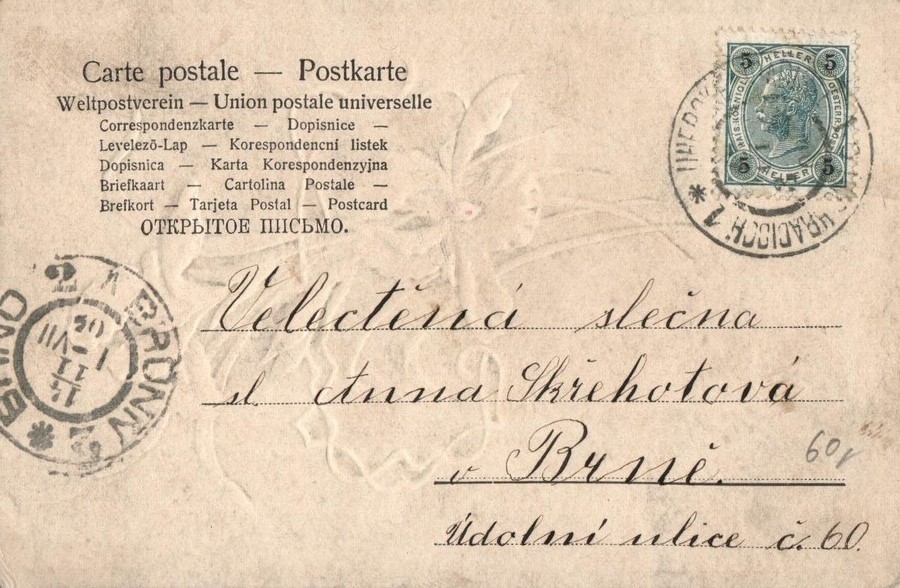 Carte postale — Postkarte
Weltpostverein — Union postale universelle
Correspondenzkarte — Dopisnice —
Levelező-Lap — Korespondencni listek
Dopisnica — Karta Korespondenzyjna
Briefkaart — Cartolina Postale —
Brefkort — Tarjeta Postal — Postcard
ОТКРЫТОЕ ПИСЬМО.
5 HELLER 5
5 HELLER 5
HRADISCH 1 *
BRÜNN 2 * BRNO 2
Velectěná slečna
sl. Anna Skřehotová
v Brně.
Údolní ulice č. 60.
60,